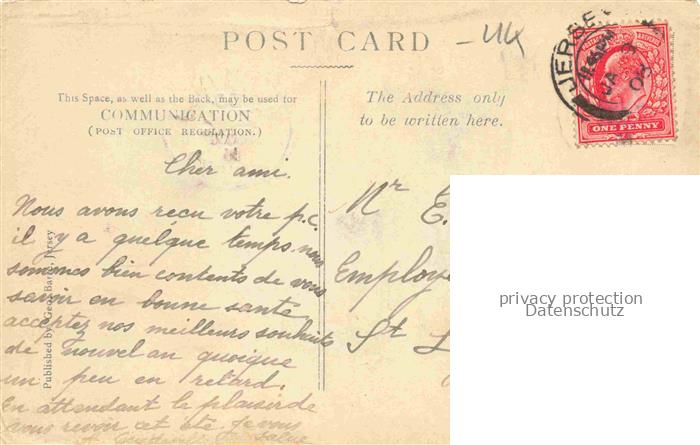 POST CARD
- UK
JERSEY
JA 3
06
ONE PENNY
This Space, as well as the Back, may be used for
COMMUNICATION
(POST OFFICE REGULATION.)
The Address only
to be written here.
Cher ami.
Nous avons reçu votre p.c.
il y a quelque temps. nous
sommes bien contents de vous
savoir en bonne santé
acceptez nos meilleurs souhaits
de nouvel an quoique
un peu en retard.
En attendant le plaisir de
vous revoir cet été je vous
salue
Mr E.
Employé
St L
Published by Geo. Barre, Jersey
privacy protection
Datenschutz